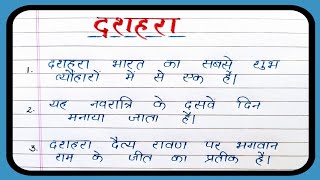 दशहरा
1. दशहरा भारत का सबसे शुभ
त्यौहारों में से एक है।
2. यह नवरात्रि के दसवें दिन
मनाया जाता है।
3. दशहरा दैत्य रावण पर भगवान
राम के जीत का प्रतीक है।